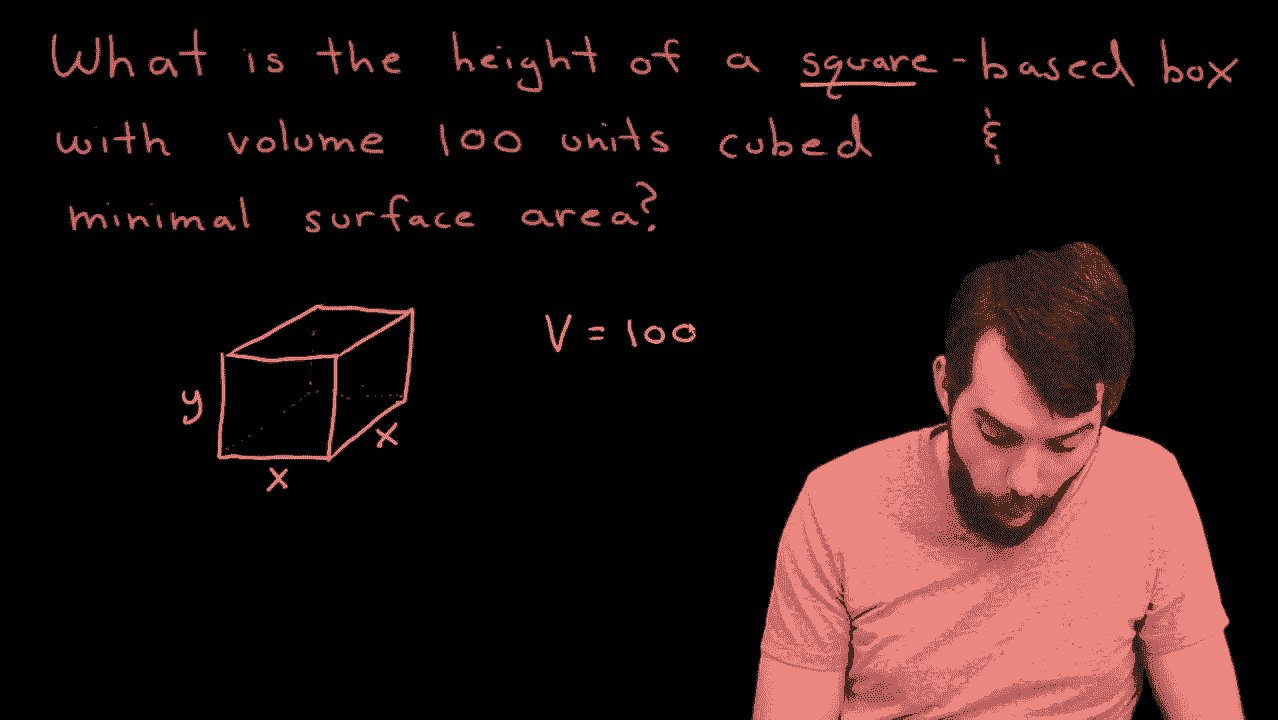 What is the height of a square-based box
with volume 100 units cubed &
minimal surface area?
V = 100
y
x
x